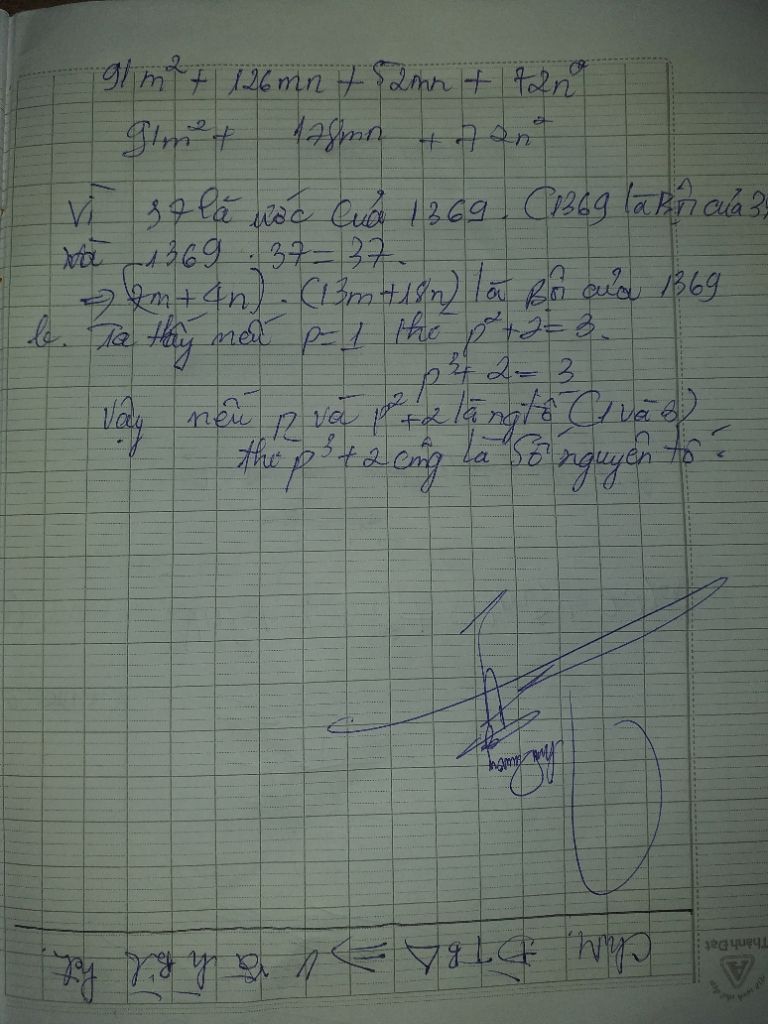 91m² + 126mn + 52mn + 72n²
91m² + 178mn + 72n²
Vì 37 là ước của 1369. (1369 là Bội của 3
và 1369 : 37 = 37.
=> (7m + 4n) . (13m + 18n) là Bội của 1369
b. Ta thấy nếu p = 1 thì p² + 2 = 3.
p³ + 2 = 3
Vậy nếu p và p² + 2 là ngtố (1 và 3)
thì p³ + 2 cũng là số nguyên tố.
Thành Đạt
CHM. ĐTBA => 1